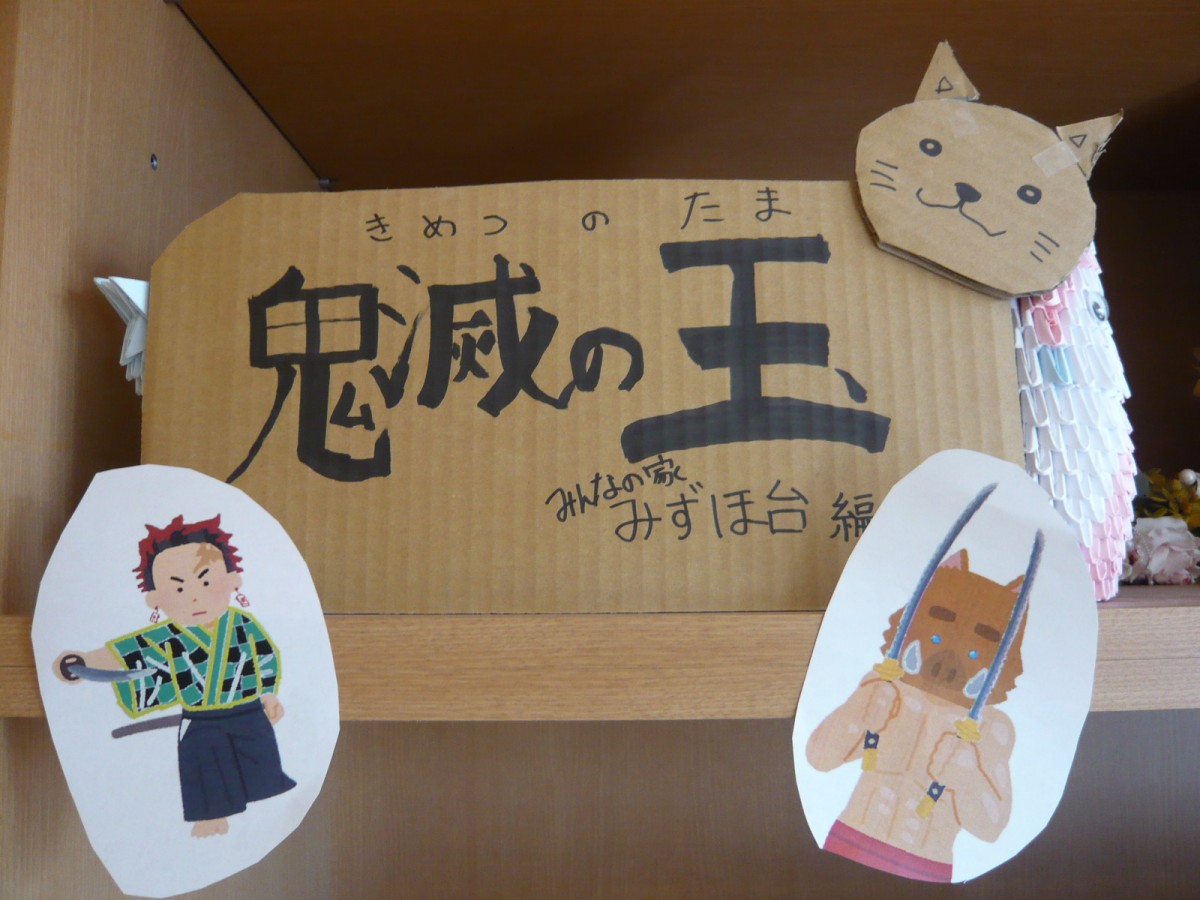 きめつ の たま
鬼滅の玉
みんなの家
みずほ台 編